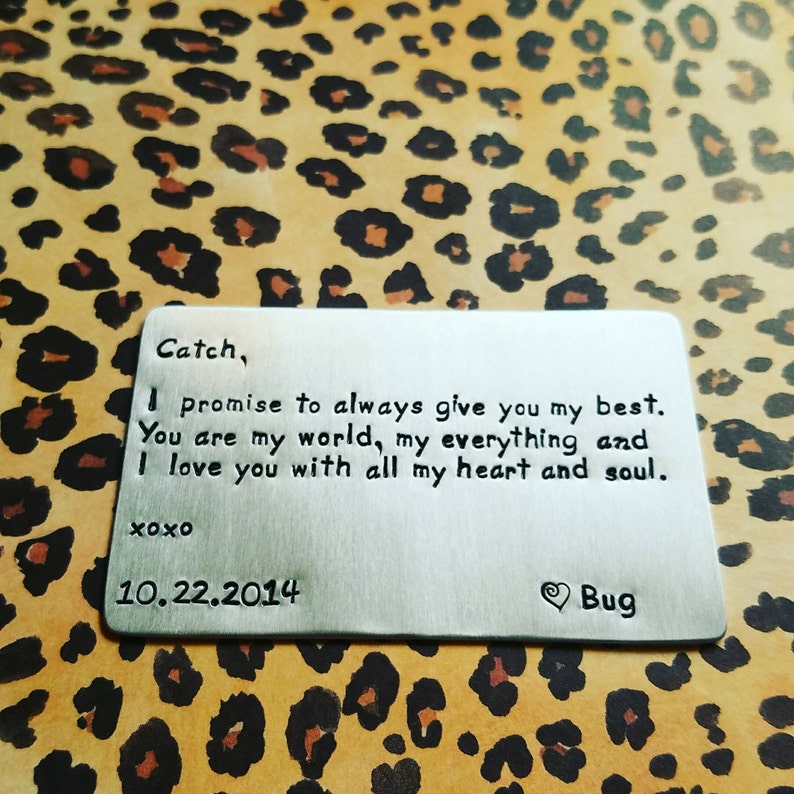 Catch,
I promise to always give you my best.
You are my world, my everything and
I love you with all my heart and soul.
xoxo
10.22.2014
Bug